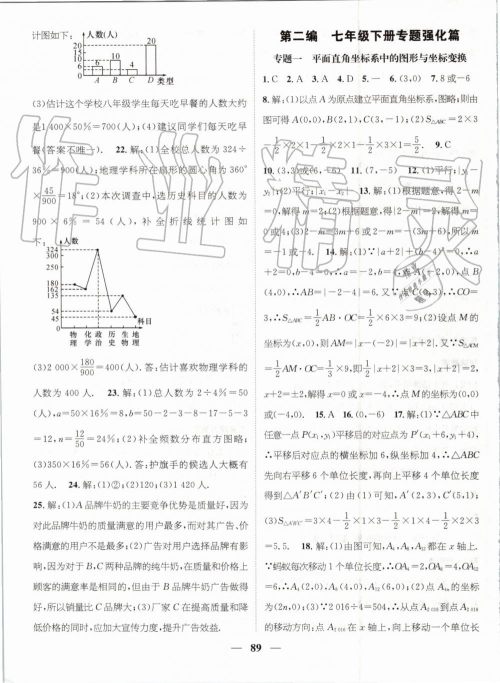 计图如下：
人数(人)
20
15
10
5
0
20
10
6
4
A B C D 类型
(3)估计这个学校八年级学生每天吃早餐的人数大约
是1400×50%=700(人)；(4)建议同学们每天吃早
餐(答案不唯一). 22. 解：(1)全校总人数为324÷
36%=900(人)；地理学科所在扇形的圆心角为360°
×45/900=18°；(2)本次调查中，选历史科目的人数为
900×6%=54(人)，补全折线统计图如
下：
人数
324
300
240
180
162
120
54
45
0
物理 化学 政治 历史 生物 地理 科目
(3)2 000×180/900=400(人). 答：估计喜欢物理学科的
人数为400人. 23. 解：(1)总人数为2÷4%=50(人)，
a=50×16%=8，b=50-2-3-8-17-5-3
=12，n=12/50=24%；(2)补全频数分布直方图略；
(3)350×16%=56(人). 答：护旗手的候选人大概有
56人. 24. 解：(1)②；(2)120；(3)1 420人.
25. 解：(1)A品牌牛奶的主要竞争优势是质量好，因为
对此品牌牛奶的质量满意的用户最多，而对其广告、价
格满意的用户不是最多；(2)广告对用户选择品牌有影
响，因为对于B，C两种品牌的纯牛奶，在质量和价格上
顾客的满意率是相同的，但由于B品牌牛奶广告做得
好，所以销量比C品牌大；(3)厂家C在提高质量和降
低价格的同时，应加大宣传力度，提升广告效益.
第二编 七年级下册专题强化篇
专题一 平面直角坐标系中的图形与坐标变换
1. C 2. A 3. A 4. D 5. 一 6. (3,0) 7. 8或-6
8. 解：(1)以点A为原点建立平面直角坐标系，图略；则由
图可得A(0,0)，B(2,1)，C(3,-1)；(2)S△ABC=2×3
-1/2×2×1-1/2×2×1-1/2×1×3=5/2. 9. C
10. (3,3)或(6,-6) 11. (7,-5) 12. (1)平行；|y₁-
y₂|；(2)平行；|x₁-x₂| 13. 解：(1)根据题意，得2-m
=0，解得m=2；(2)根据题意，得2-m=0，解得m=
0或4；(3)2-m=3m+6或2-m=-(3m+6)，所以m
=-1或-4. 14. 解：(1)∵|a+2|+(b-4)²=0，∴a
+2=0，b-4=0，∴a=-2，b=4，∴点A(-2,0)，点B
(4,0)，∴AB=|-2-4|=6. 又∵C(0,3)，∴CO=
3，∴S△ABC=1/2AB·OC=1/2×6×3=9；(2)设点M的
坐标为(x,0)，则AM=|x-(-2)|=|x+2|，又∵S△ACM
=1/2AM·OC=1/3×9，即1/2|x+2|×3=3，|x+2|=2，
x+2=±2，解得x=0或x=-4，∴点M的坐标为(0,0)
或(-4,0). 15. A 16. (0,-6) 17. 解：(1)∵△ABC中
任意一点P(x₁,y₁)平移后的对应点为P′(x₁+6,y₁+4)，
∴平移后对应点的横坐标加6，纵坐标加4，∴△ABC
先向右平移6个单位长度，再向上平移4个单位长度
得到△A′B′C′；(2)由(1)可知，A′(2,3)，C′(5,1)；
(3)S△ABC=3×4-1/2×1×3-1/2×1×4-1/2×2×3
=5.5. 18. 解：(1)由图可知，A₄，A₈，A₁₂都在x轴上.
∵蚂蚁每次移动1个单位长度，∴OA₄=2，OA₈=4，OA₁₂
=6，∴A₄(2,0)，A₈(4,0)，A₁₂(6,0)；(2)点A₄ₙ的坐标
为(2n,0)；(3)∵2 016÷4=504，∴从点A₂₀₁₆到点A₂₀₁₈
的移动方向：点A₂₀₁₆在x轴上，向上移动一个单位长
89